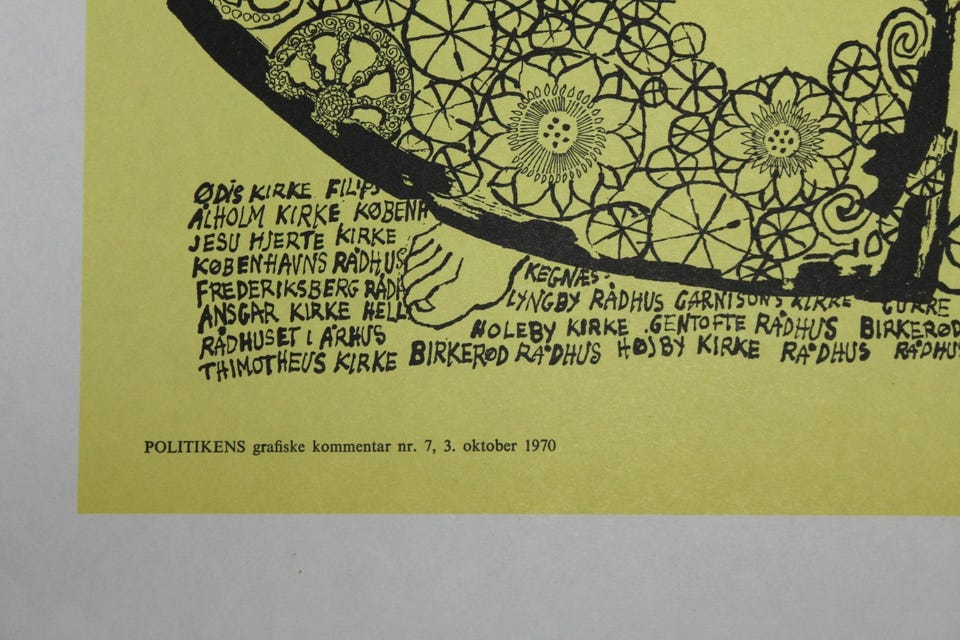 ØDIS KIRKE FILIPS
ALHOLM KIRKE KØBENH
JESU HJERTE KIRKE
KØBENHAVNS RÅDHUS
FREDERIKSBERG RÅDH
ANSGAR KIRKE HELL
RÅDHUSET I ÅRHUS
THIMOTHEUS KIRKE BIRKERØD RÅDHUS HØJBY KIRKE RÅDHUS RÅDHUS
KEGNÆS
LYNGBY RÅDHUS GARNISONS KIRKE GURRE
HOLEBY KIRKE . GENTOFTE RÅDHUS BIRKERØD
POLITIKENS grafiske kommentar nr. 7, 3. oktober 1970